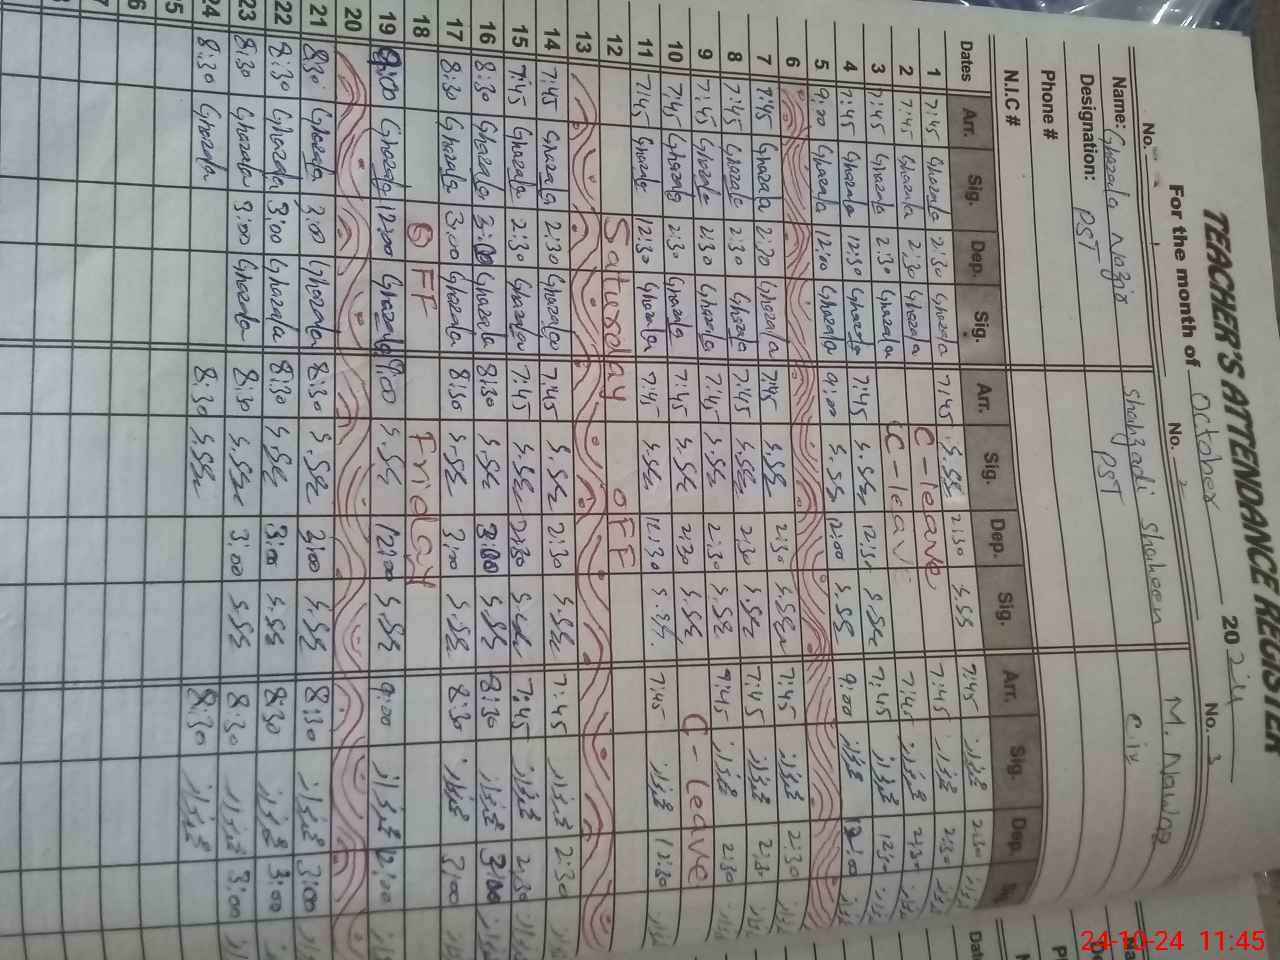 TEACHER'S ATTENDANCE REGISTER
For the month of October 2024
No. No. 2 No. 3
Name: Ghazala Nazia Shahzadi Shaheen M. Nawaz
Designation: PST PST C.iv
Phone #
N.I.C #
Dates Arr. Sig. Dep. Sig. Arr. Sig. Dep. Sig. Arr. Sig. Dep.
1 7:45 Ghazala 2:30 Ghazala 7:45 S.SS 2:30 S.SS 7:45 2:30
2 7:45 Ghazala 2:30 Ghazala C-leave 7:45 2:30
3 7:45 Ghazala 2:30 Ghazala C-leave 7:45 2:30
4 7:45 Ghazala 12:30 Ghazala 7:45 S.SS 12:30 S.SS 7:45 12:30
5 9:00 Ghazala 12:00 Ghazala 9:00 S.SS 12:00 S.SS 9:00 12:00
6
7 7:45 Ghazala 2:30 Ghazala 7:45 S.SS 2:30 S.SS 7:45 2:30
8 7:45 Ghazala 2:30 Ghazala 7:45 S.SS 2:30 S.SS 7:45 2:30
9 7:45 Ghazala 2:30 Ghazala 7:45 S.SS 2:30 S.SS 7:45 2:30
10 7:45 Ghazala 2:30 Ghazala 7:45 S.SS 2:30 S.SS C-Leave
11 7:45 Ghazala 12:30 Ghazala 7:45 S.SS 12:30 S.SS 7:45 12:30
12 Saturday OFF
13
14 7:45 Ghazala 2:30 Ghazala 7:45 S.SS 2:30 S.SS 7:45 2:30
15 7:45 Ghazala 2:30 Ghazala 7:45 S.SS 2:30 S.SS 7:45 2:30
16 8:30 Ghazala 3:00 Ghazala 8:30 S.SS 3:00 S.SS 8:30 3:00
17 8:30 Ghazala 3:00 Ghazala 8:30 S.SS 3:00 S.SS 8:30 3:00
18 OFF Friday
19 9:00 Ghazala 12:00 Ghazala 9:00 S.SS 12:00 S.SS 9:00 12:00
20
21 8:30 Ghazala 3:00 Ghazala 8:30 S.SS 3:00 S.SS 8:30 3:00
22 8:30 Ghazala 3:00 Ghazala 8:30 S.SS 3:00 S.SS 8:30 3:00
23 8:30 Ghazala 3:00 Ghazala 8:30 S.SS 3:00 S.SS 8:30 3:00
24 8:30 Ghazala 8:30 S.SS 8:30
24-10-24 11:45